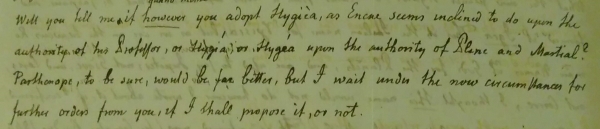 Will you tell me, if however you adopt Hygiëa, as Encke seems inclined to do upon the
authority of his Professor, or Hygia, or Hygea upon the authority of Pline and Martial?
Parthenope, to be sure, would be far better, but I wait under the now circumstances for
further orders from you, if I shall propose it, or not.